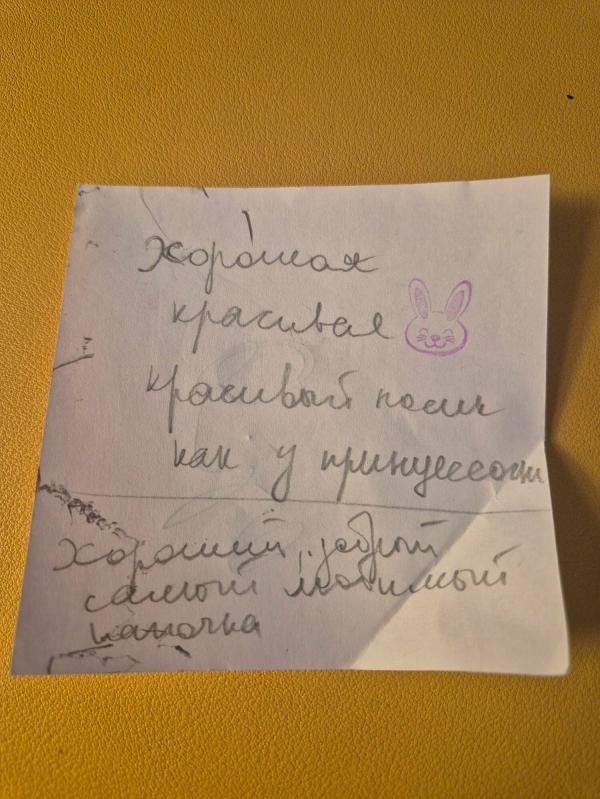 Хорошая
красивая
красивый носик
как у принцессочки
Хороший, добрый
самый любимый
папочка